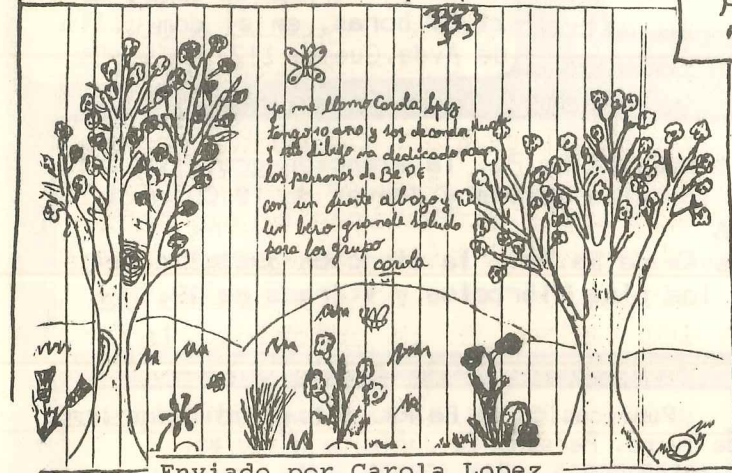 yo me llamo Carola lpez
tengo 10 ano y soy de conda
y este dibujo va dedicado para
las personas de BePE
con un fuerte abrazo y
un beso grande saludo
para los grupo
carola
Enviado por Carola Lopez